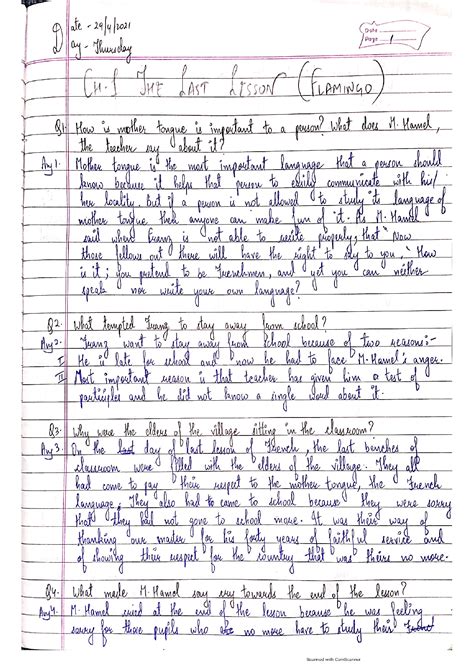 Date - 29/4/2021
Day - Thursday
Date
Page 1
CH-1 THE LAST LESSON (FLAMINGO)
Q1. How is mother tongue is important to a person? What does M. Hamel,
the teacher say about it?
Ans 1. Mother tongue is the most important language that a person should
know because it helps that person to easily communicate with his/
her locality. But if a person is not allowed to study its language of
mother tongue then anyone can make fun of it. As M. Hamel
said when Franz is not able to recite properly, that 'Now
those fellows out there will have the right to say to you, 'How
is it; you pretend to be Frenchmen, and yet you can neither
speak nor write your own language?
Q2. What tempted Franz to stay away from school?
Ans 2. Franz want to stay away from School because of two reasons:-
I. He is late for school and now he had to face M. Hamel's anger.
II Most important reason is that teacher has given him a test of
participles and he did not know a single word about it.
Q3. Why were the elders of the village sitting in the classroom?
Ans 3. On the day of last lesson of French, the last benches of
classroom were filled with the elders of the village. They all
had come to pay their respect to the mother tongue, the French
language. They also had to came to school because they were sorry
that they had not gone to school more. It was their way of
thanking our master for his forty years of faithful service and
of showing their respect for the country that was theirs no more.
Q4. What made M. Hamel say cry towards the end of the lesson?
Ans 4. M. Hamel cried at the end of the lesson because he was feeling
sorry for those pupils who no more have to study their
Scanned with CamScanner